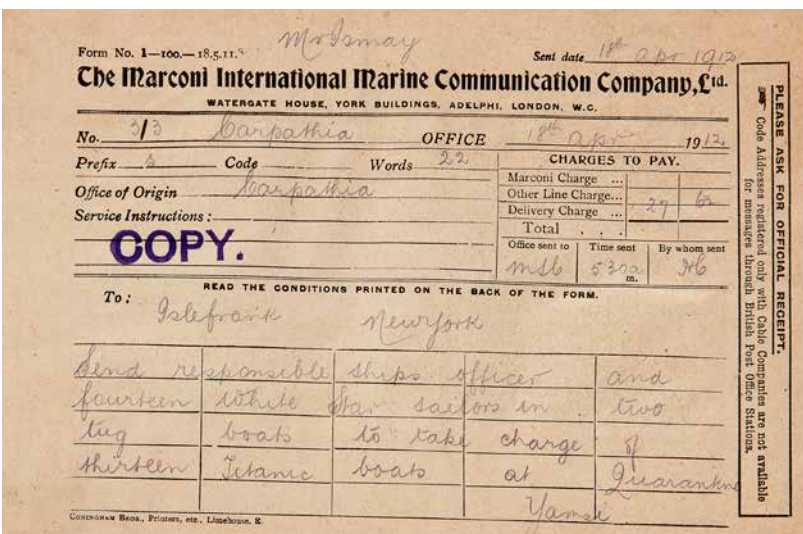 Mr Ismay
Form No. 1—100.—18.5.11.
Sent date 18th Apr 1912
The Marconi International Marine Communication Company, Ltd.
WATERGATE HOUSE, YORK BUILDINGS, ADELPHI, LONDON, W.C.
No. 3/3 Carpathia OFFICE 18th Apr 1912
Prefix s Code Words 22
CHARGES TO PAY.
Office of Origin Carpathia
Marconi Charge ...
Other Line Charge...
Service Instructions:
Delivery Charge ...
Total . .
COPY.
Office sent to Time sent By whom sent
MSC 530a m.
READ THE CONDITIONS PRINTED ON THE BACK OF THE FORM.
To: Islefrank New York
Send responsible ships officer and
fourteen White Star sailors in two
tug boats to take charge of
thirteen Titanic boats at Quarantine
Yamsi
CONINGHAM BROS., Printers, etc., Limehouse, E.
PLEASE ASK FOR OFFICIAL RECEIPT.
Code Addresses registered only with Cable Companies are not available
for messages through British Post Office Stations.